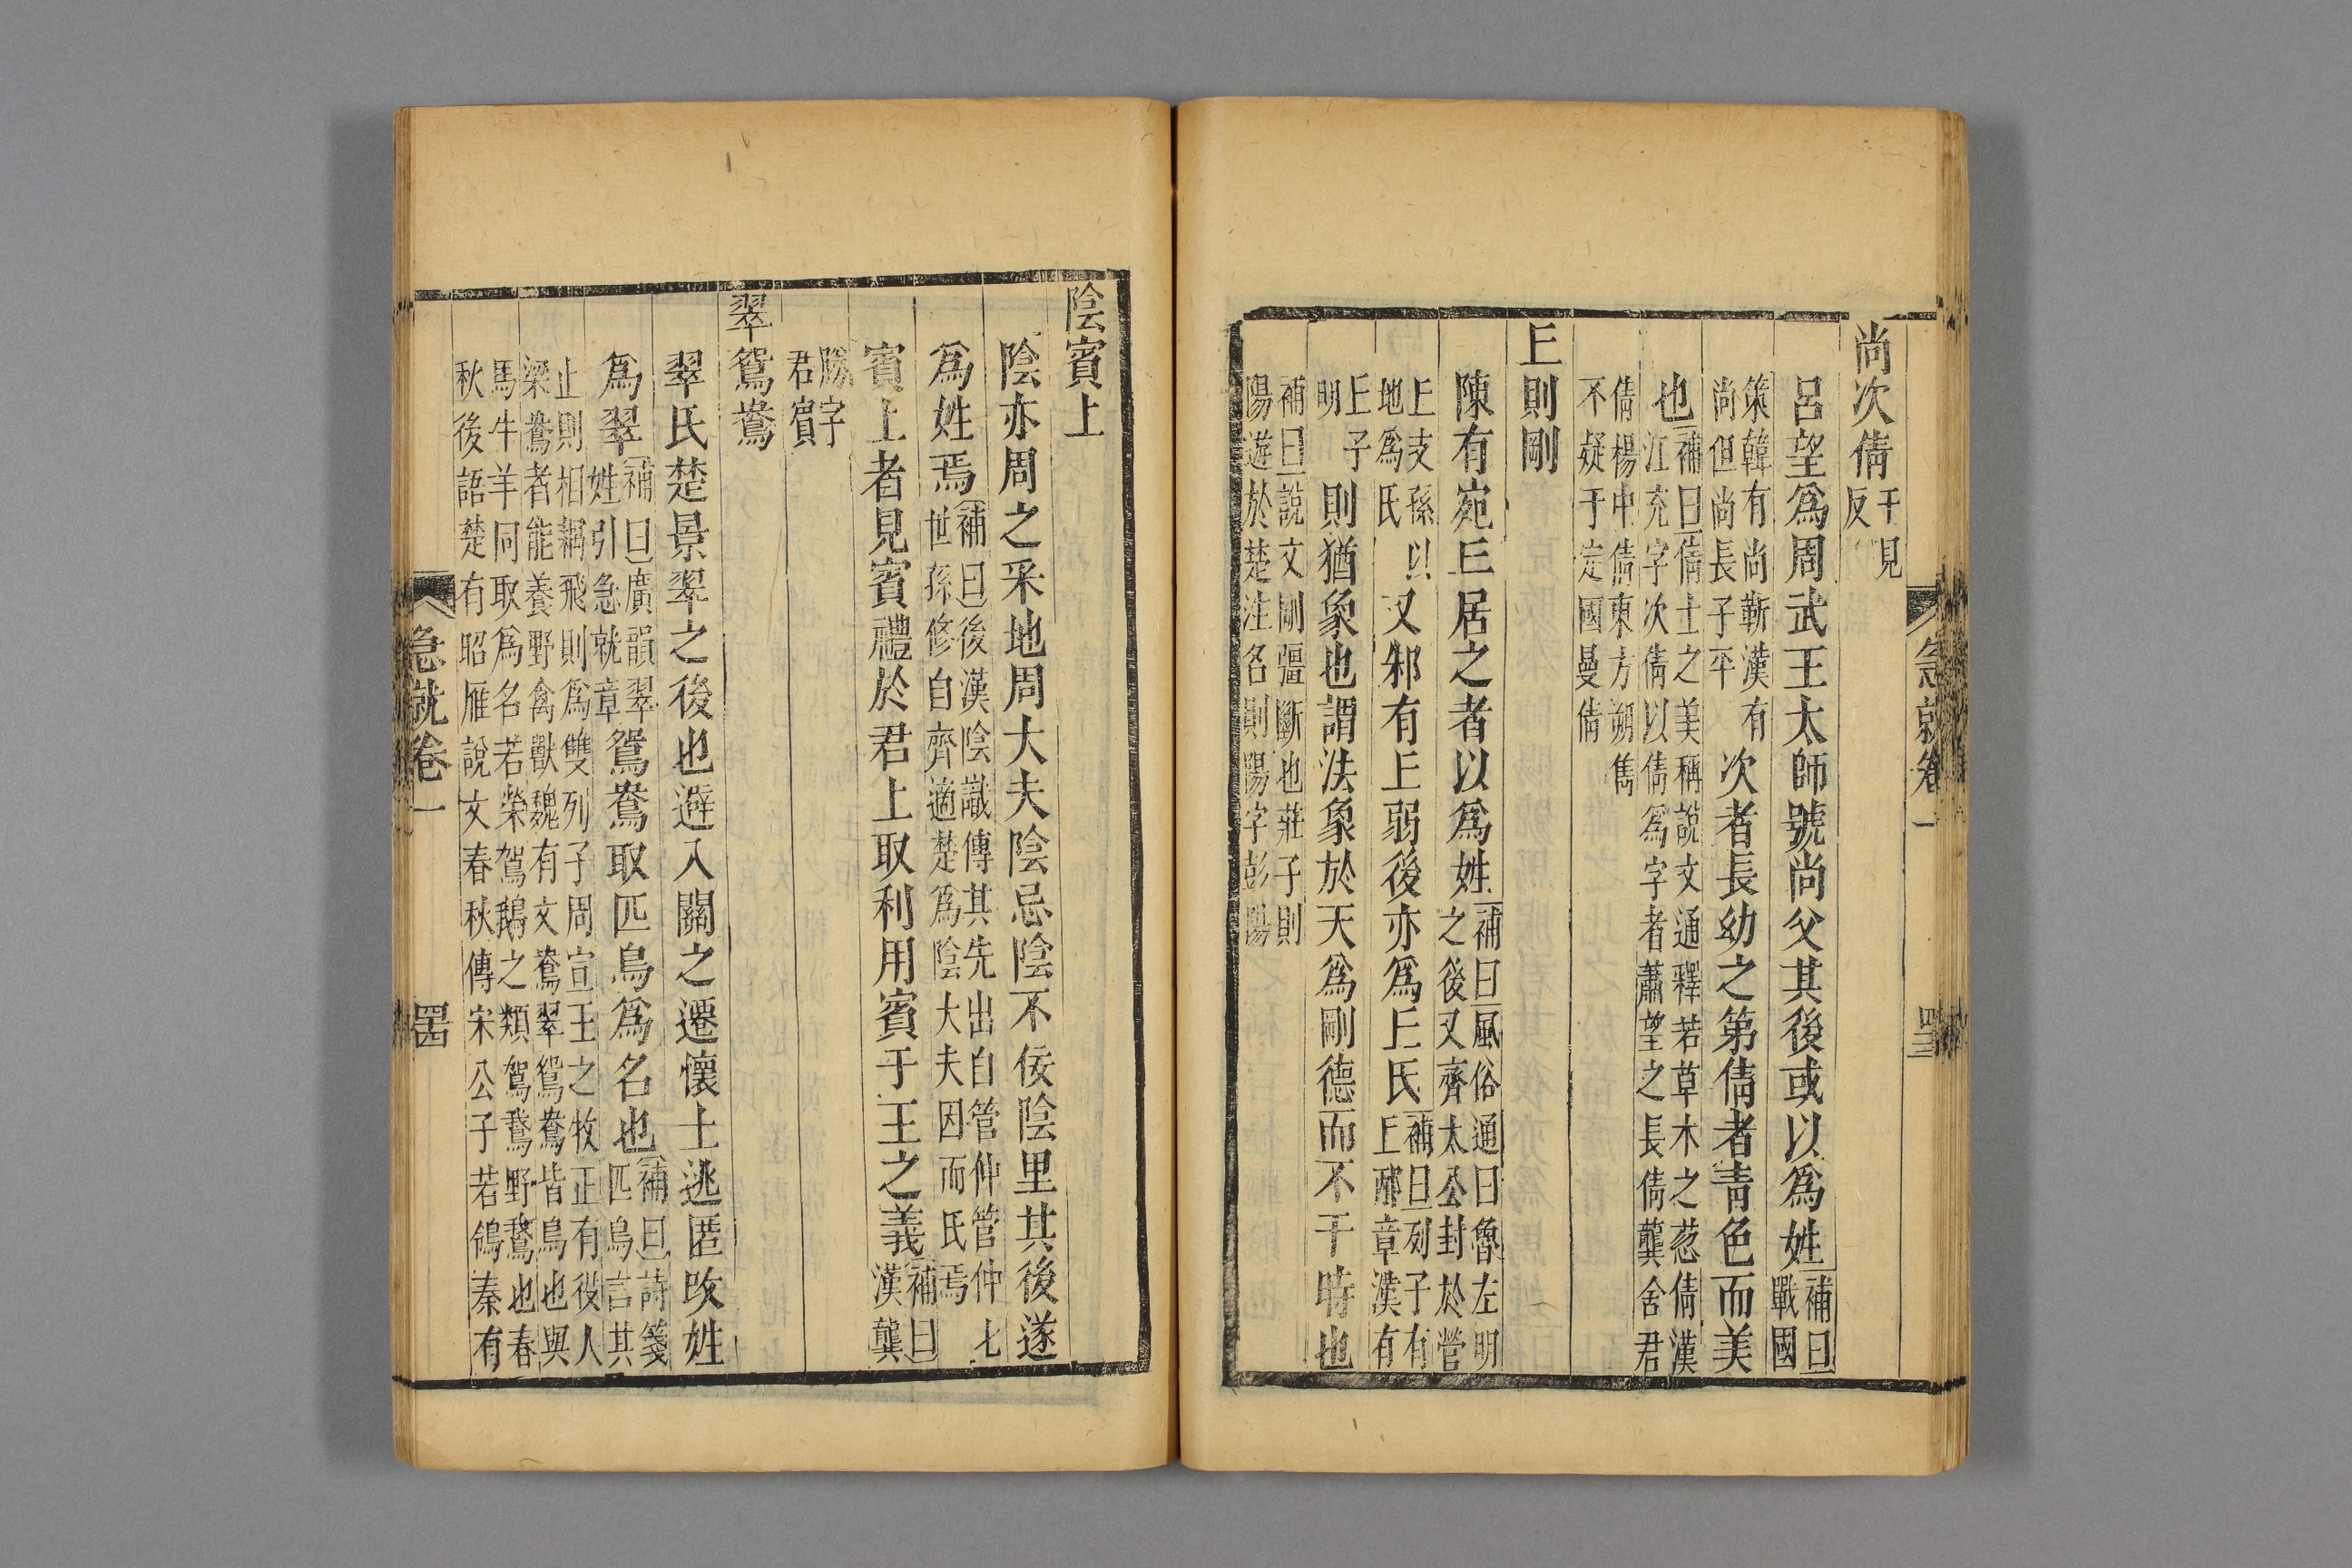 急就卷一
四三
尚次倩千見反
呂望爲周武王太師號尚父其後或以爲姓補曰戰國
策韓有尚靳漢有尚但尚長子平次者長幼之第倩者靑色而美
也補曰倩士之美稱說文通釋若草木之葱倩漢江充字次倩以倩爲字者蕭望之長倩龔舍君
倩楊中倩東方朔雋不疑于定國曼倩
丘則剛
陳有宛丘居之者以爲姓補曰風俗通曰魯左丘明之後又齊太公封於營
丘支孫以地爲氏又邾有丘弱後亦爲丘氏補曰列子有丘邴章漢有
丘子明則猶象也謂法象於天爲剛德而不干時也
補曰說文剛彊斷也莊子則陽遊於楚注名則陽字彭陽
陰賓上
陰亦周之采地周大夫陰忌陰不佞陰里其後遂
爲姓焉補曰後漢陰識傳其先出自管仲管仲七世孫修自齊適楚爲陰大夫因而氏焉
賓上者見賓禮於君上取利用賓于王之義補曰漢龔
勝字君賓
翠鴛鴦
翠氏楚景翠之後也避入關之遷懷土逃匿改姓
爲翠補曰廣韻翠姓引急就章鴛鴦取匹鳥爲名也補曰詩箋匹鳥言其
止則相耦飛則爲雙列子周宣王之牧正有役人梁鴦者能養野禽獸魏有文鴦翠鴛鴦皆鳥也與
馬牛羊同取爲名若榮駕鵝之類駕鵞野鵞也春秋後語楚有昭雁說文春秋傳宋公子若鴿秦有
急就卷一
四四